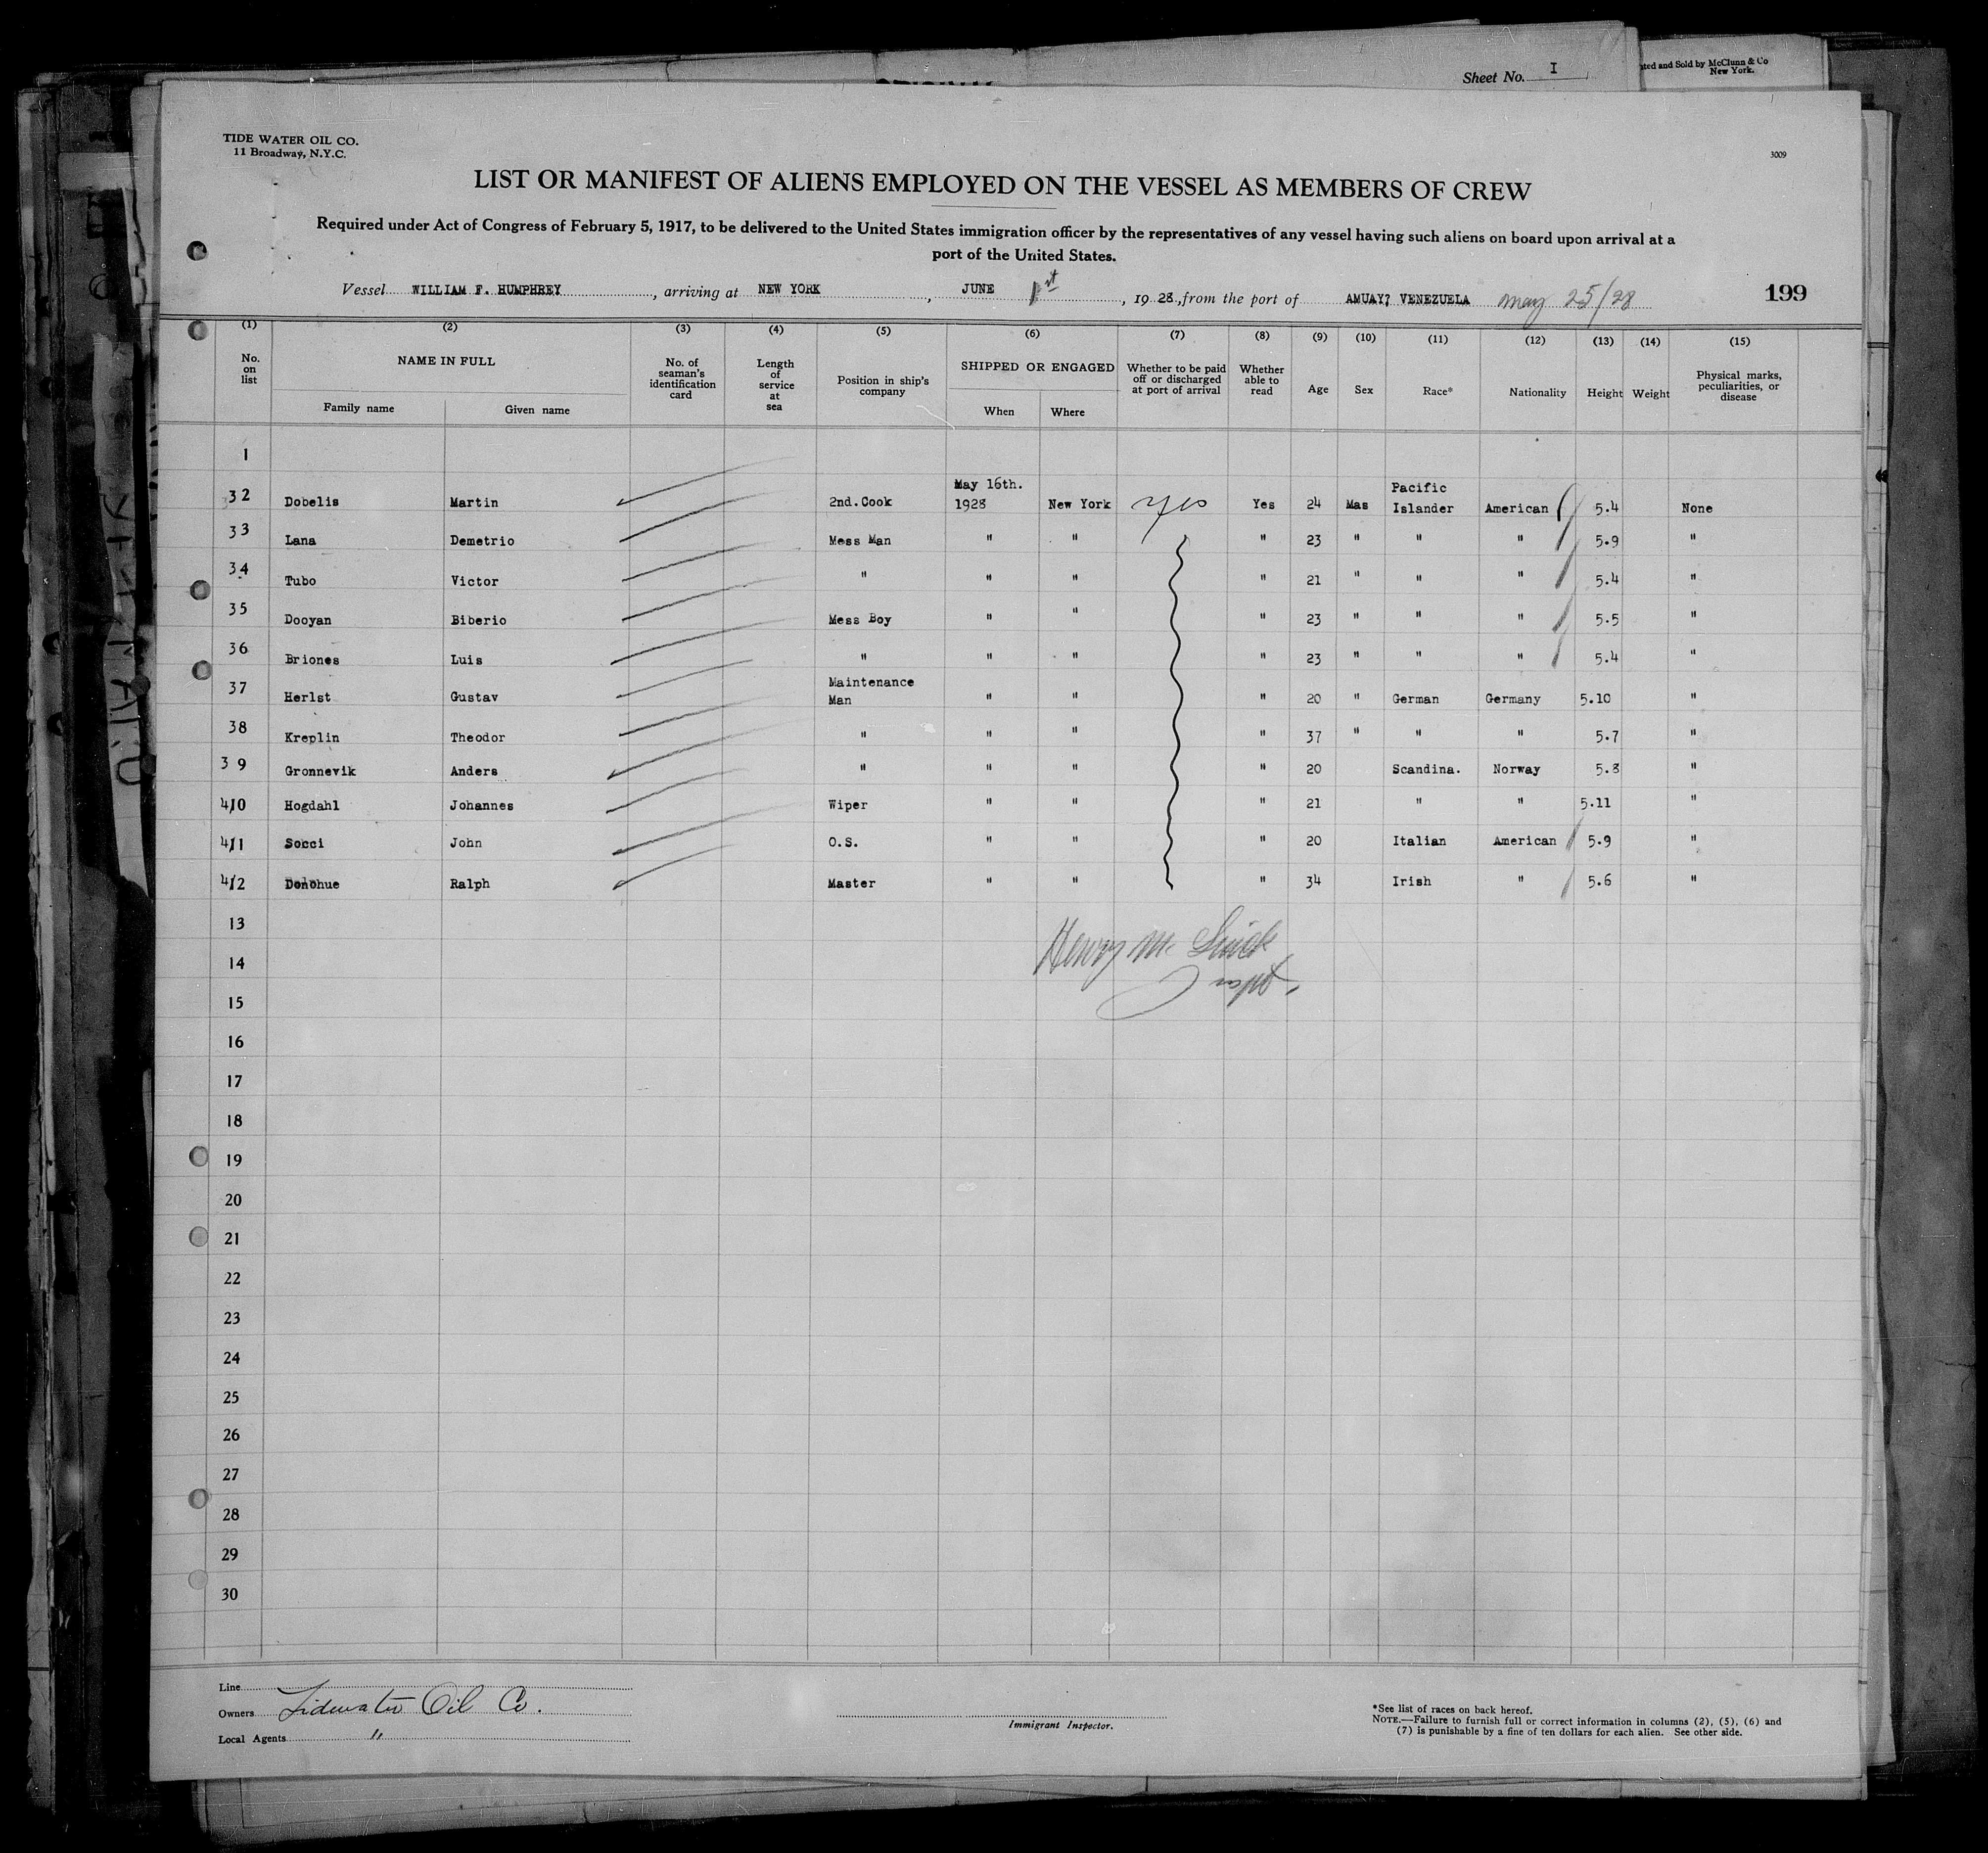 Sheet No. I
ted and Sold by McClunn & Co
New York.
TIDE WATER OIL CO.
11 Broadway, N.Y.C.
3009
LIST OR MANIFEST OF ALIENS EMPLOYED ON THE VESSEL AS MEMBERS OF CREW
Required under Act of Congress of February 5, 1917, to be delivered to the United States immigration officer by the representatives of any vessel having such aliens on board upon arrival at a
port of the United States.
Vessel WILLIAM F. HUMPHREY, arriving at NEW YORK, JUNE 1st, 1928, from the port of AMUAY? VENEZUELA May 25/28 199
(1) (2) (3) (4) (5) (6) (7) (8) (9) (10) (11) (12) (13) (14) (15)
No. on list NAME IN FULL No. of seaman's identification card Length of service at sea Position in ship's company SHIPPED OR ENGAGED Whether to be paid off or discharged at port of arrival Whether able to read Age Sex Race* Nationality Height Weight Physical marks, peculiarities, or disease
Family name Given name When Where
1
32 Dobelis Martin 2nd.Cook May 16th. 1928 New York Yes Yes 24 Mas Pacific Islander American 5.4 None
33 Lana Demetrio Mess Man " " " 23 " " " 5.9 "
34 Tubo Victor " " " " 21 " " " 5.4 "
35 Dooyan Biberio Mess Boy " " " 23 " " " 5.5 "
36 Briones Luis " " " " 23 " " " 5.4 "
37 Herlst Gustav Maintenance Man " " " 20 " German Germany 5.10 "
38 Kreplin Theodor " " " " 37 " " " 5.7 "
39 Gronnevik Anders " " " " 20 Scandina. Norway 5.8 "
410 Hogdahl Johannes Wiper " " " 21 " " 5.11 "
411 Socci John O.S. " " " 20 Italian American 5.9 "
412 Donohue Ralph Master " " " 34 Irish " 5.6 "
13
Henry M.
14
15
16
17
18
19
20
21
22
23
24
25
26
27
28
29
30
Line
Owners Tidewater Oil Co.
Local Agents "
Immigrant Inspector.
*See list of races on back hereof.
NOTE.—Failure to furnish full or correct information in columns (2), (5), (6) and
(7) is punishable by a fine of ten dollars for each alien. See other side.